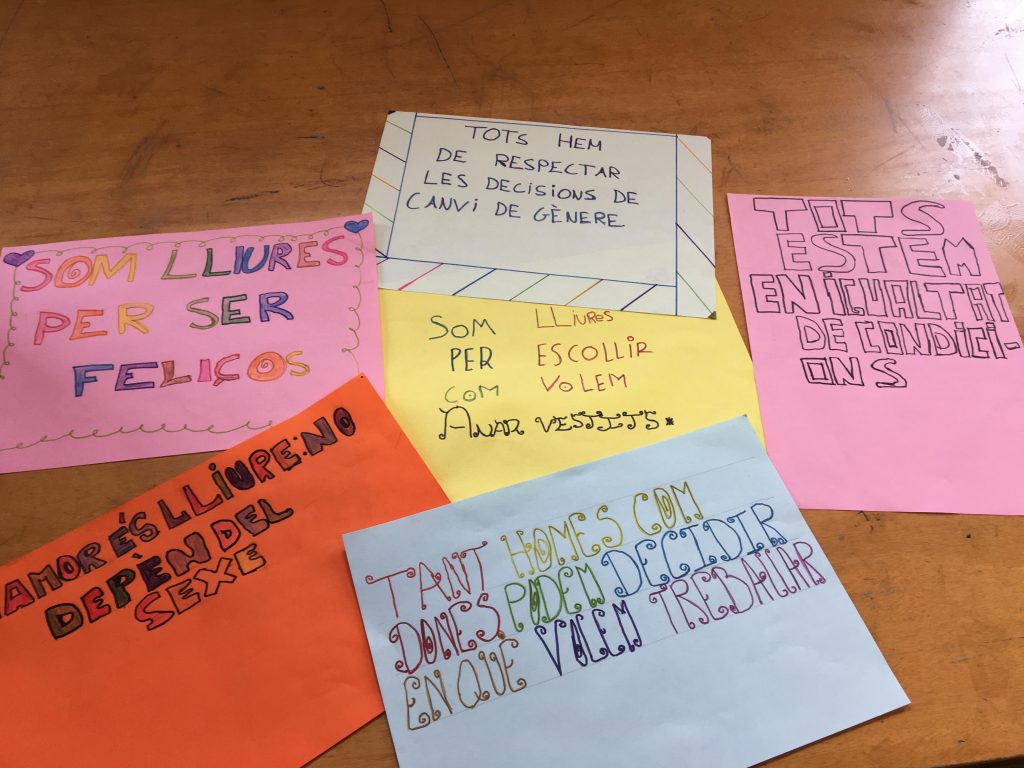 TOTS HEM
DE RESPECTAR
LES DECISIONS DE
CANVI DE GÈNERE
SOM LLIURES
PER SER
FELIÇOS
SOM LLIURES
PER ESCOLLIR
COM VOLEM
ANAR VESTITS.
TOTS
ESTEM
EN IGUALTAT
DE CONDICI-
ONS
AMOR ÉS LLIURE: NO
DEPÈN DEL
SEXE
TANT HOMES COM
DONES PODEM DECIDIR
EN QUE VOLEM TREBALLAR